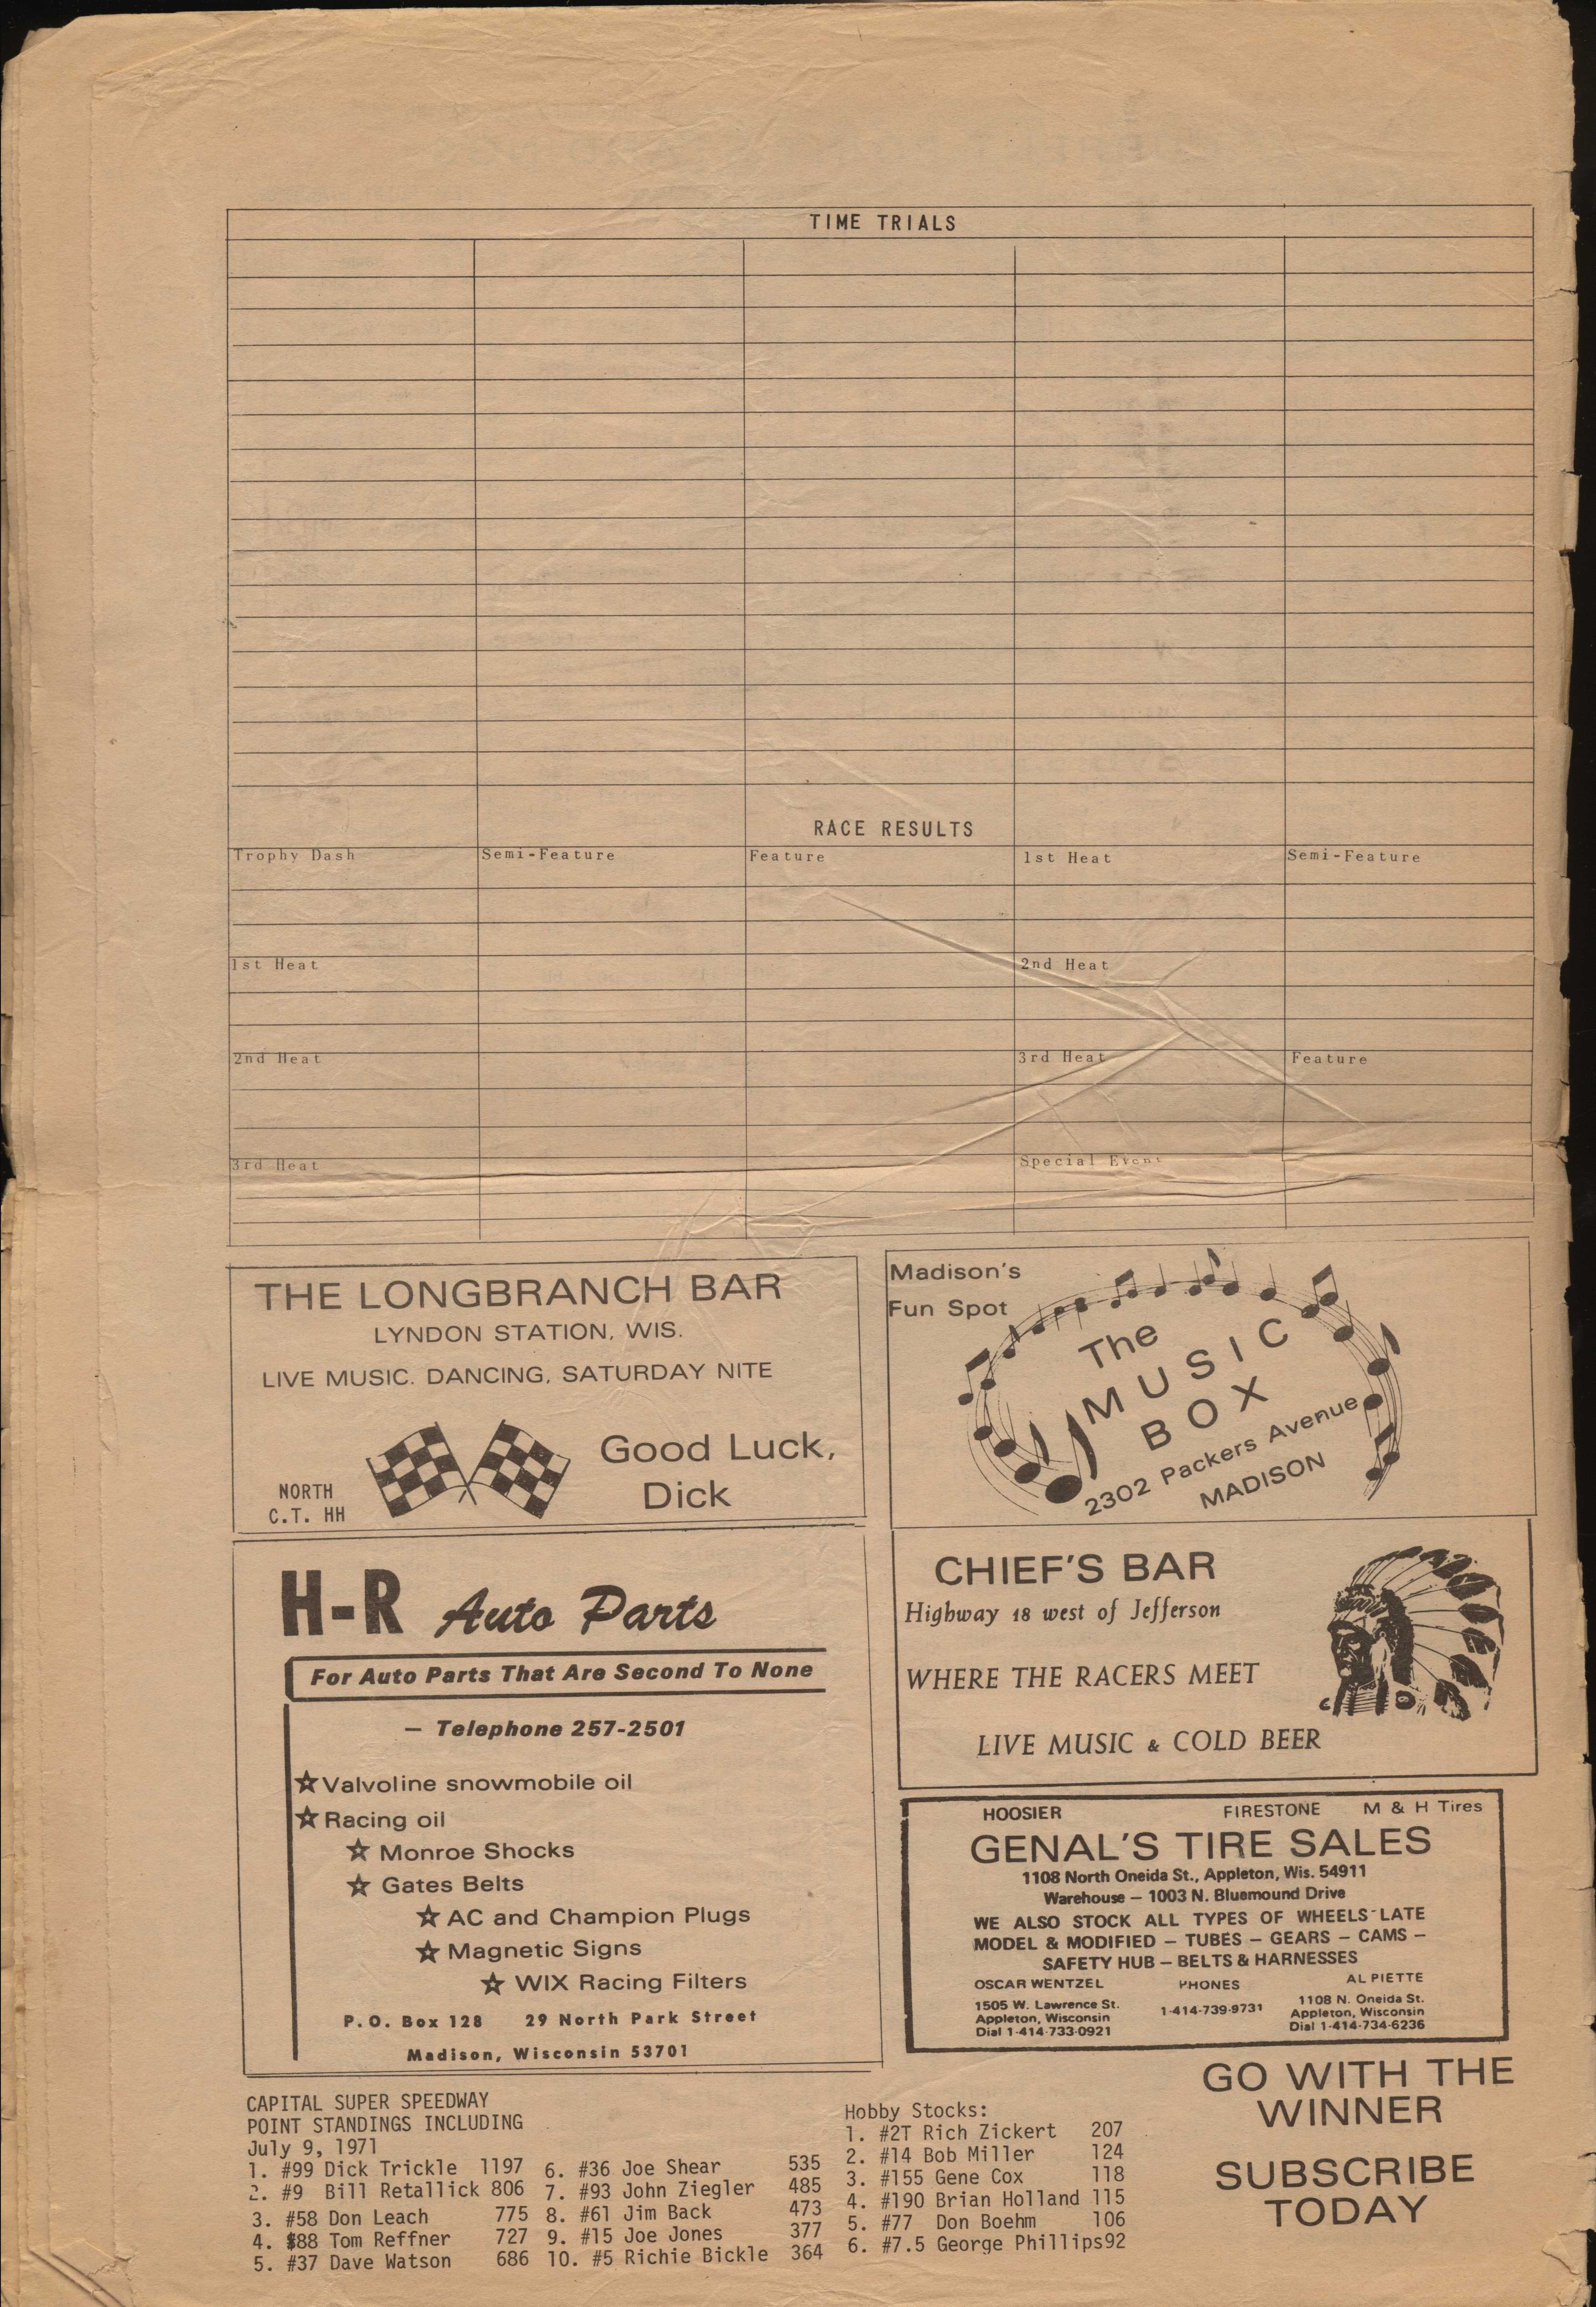 TIME TRIALS
RACE RESULTS
Trophy Dash Semi-Feature Feature 1st Heat Semi-Feature
1st Heat 2nd Heat
2nd Heat 3rd Heat Feature
3rd Heat Special Event
THE LONGBRANCH BAR
LYNDON STATION, WIS.
LIVE MUSIC. DANCING, SATURDAY NITE
Good Luck,
Dick
NORTH
C.T. HH
Madison's
Fun Spot
The
MUSIC
BOX
2302 Packers Avenue
MADISON
H-R Auto Parts
For Auto Parts That Are Second To None
— Telephone 257-2501
☆Valvoline snowmobile oil
☆Racing oil
☆ Monroe Shocks
☆ Gates Belts
☆ AC and Champion Plugs
☆ Magnetic Signs
☆ WIX Racing Filters
P.O. Box 128 29 North Park Street
Madison, Wisconsin 53701
CHIEF'S BAR
Highway 18 west of Jefferson
WHERE THE RACERS MEET
LIVE MUSIC & COLD BEER
HOOSIER FIRESTONE M & H Tires
GENAL'S TIRE SALES
1108 North Oneida St., Appleton, Wis. 54911
Warehouse — 1003 N. Bluemound Drive
WE ALSO STOCK ALL TYPES OF WHEELS-LATE
MODEL & MODIFIED — TUBES — GEARS — CAMS —
SAFETY HUB — BELTS & HARNESSES
OSCAR WENTZEL PHONES AL PIETTE
1505 W. Lawrence St. 1-414-739-9731 1108 N. Oneida St.
Appleton, Wisconsin Appleton, Wisconsin
Dial 1-414-733-0921 Dial 1-414-734-6236
CAPITAL SUPER SPEEDWAY
POINT STANDINGS INCLUDING
July 9, 1971
1. #99 Dick Trickle 1197 6. #36 Joe Shear 535
2. #9 Bill Retallick 806 7. #93 John Ziegler 485
3. #58 Don Leach 775 8. #61 Jim Back 473
4. $88 Tom Reffner 727 9. #15 Joe Jones 377
5. #37 Dave Watson 686 10. #5 Richie Bickle 364
Hobby Stocks:
1. #2T Rich Zickert 207
2. #14 Bob Miller 124
3. #155 Gene Cox 118
4. #190 Brian Holland 115
5. #77 Don Boehm 106
6. #7.5 George Phillips92
GO WITH THE
WINNER
SUBSCRIBE
TODAY